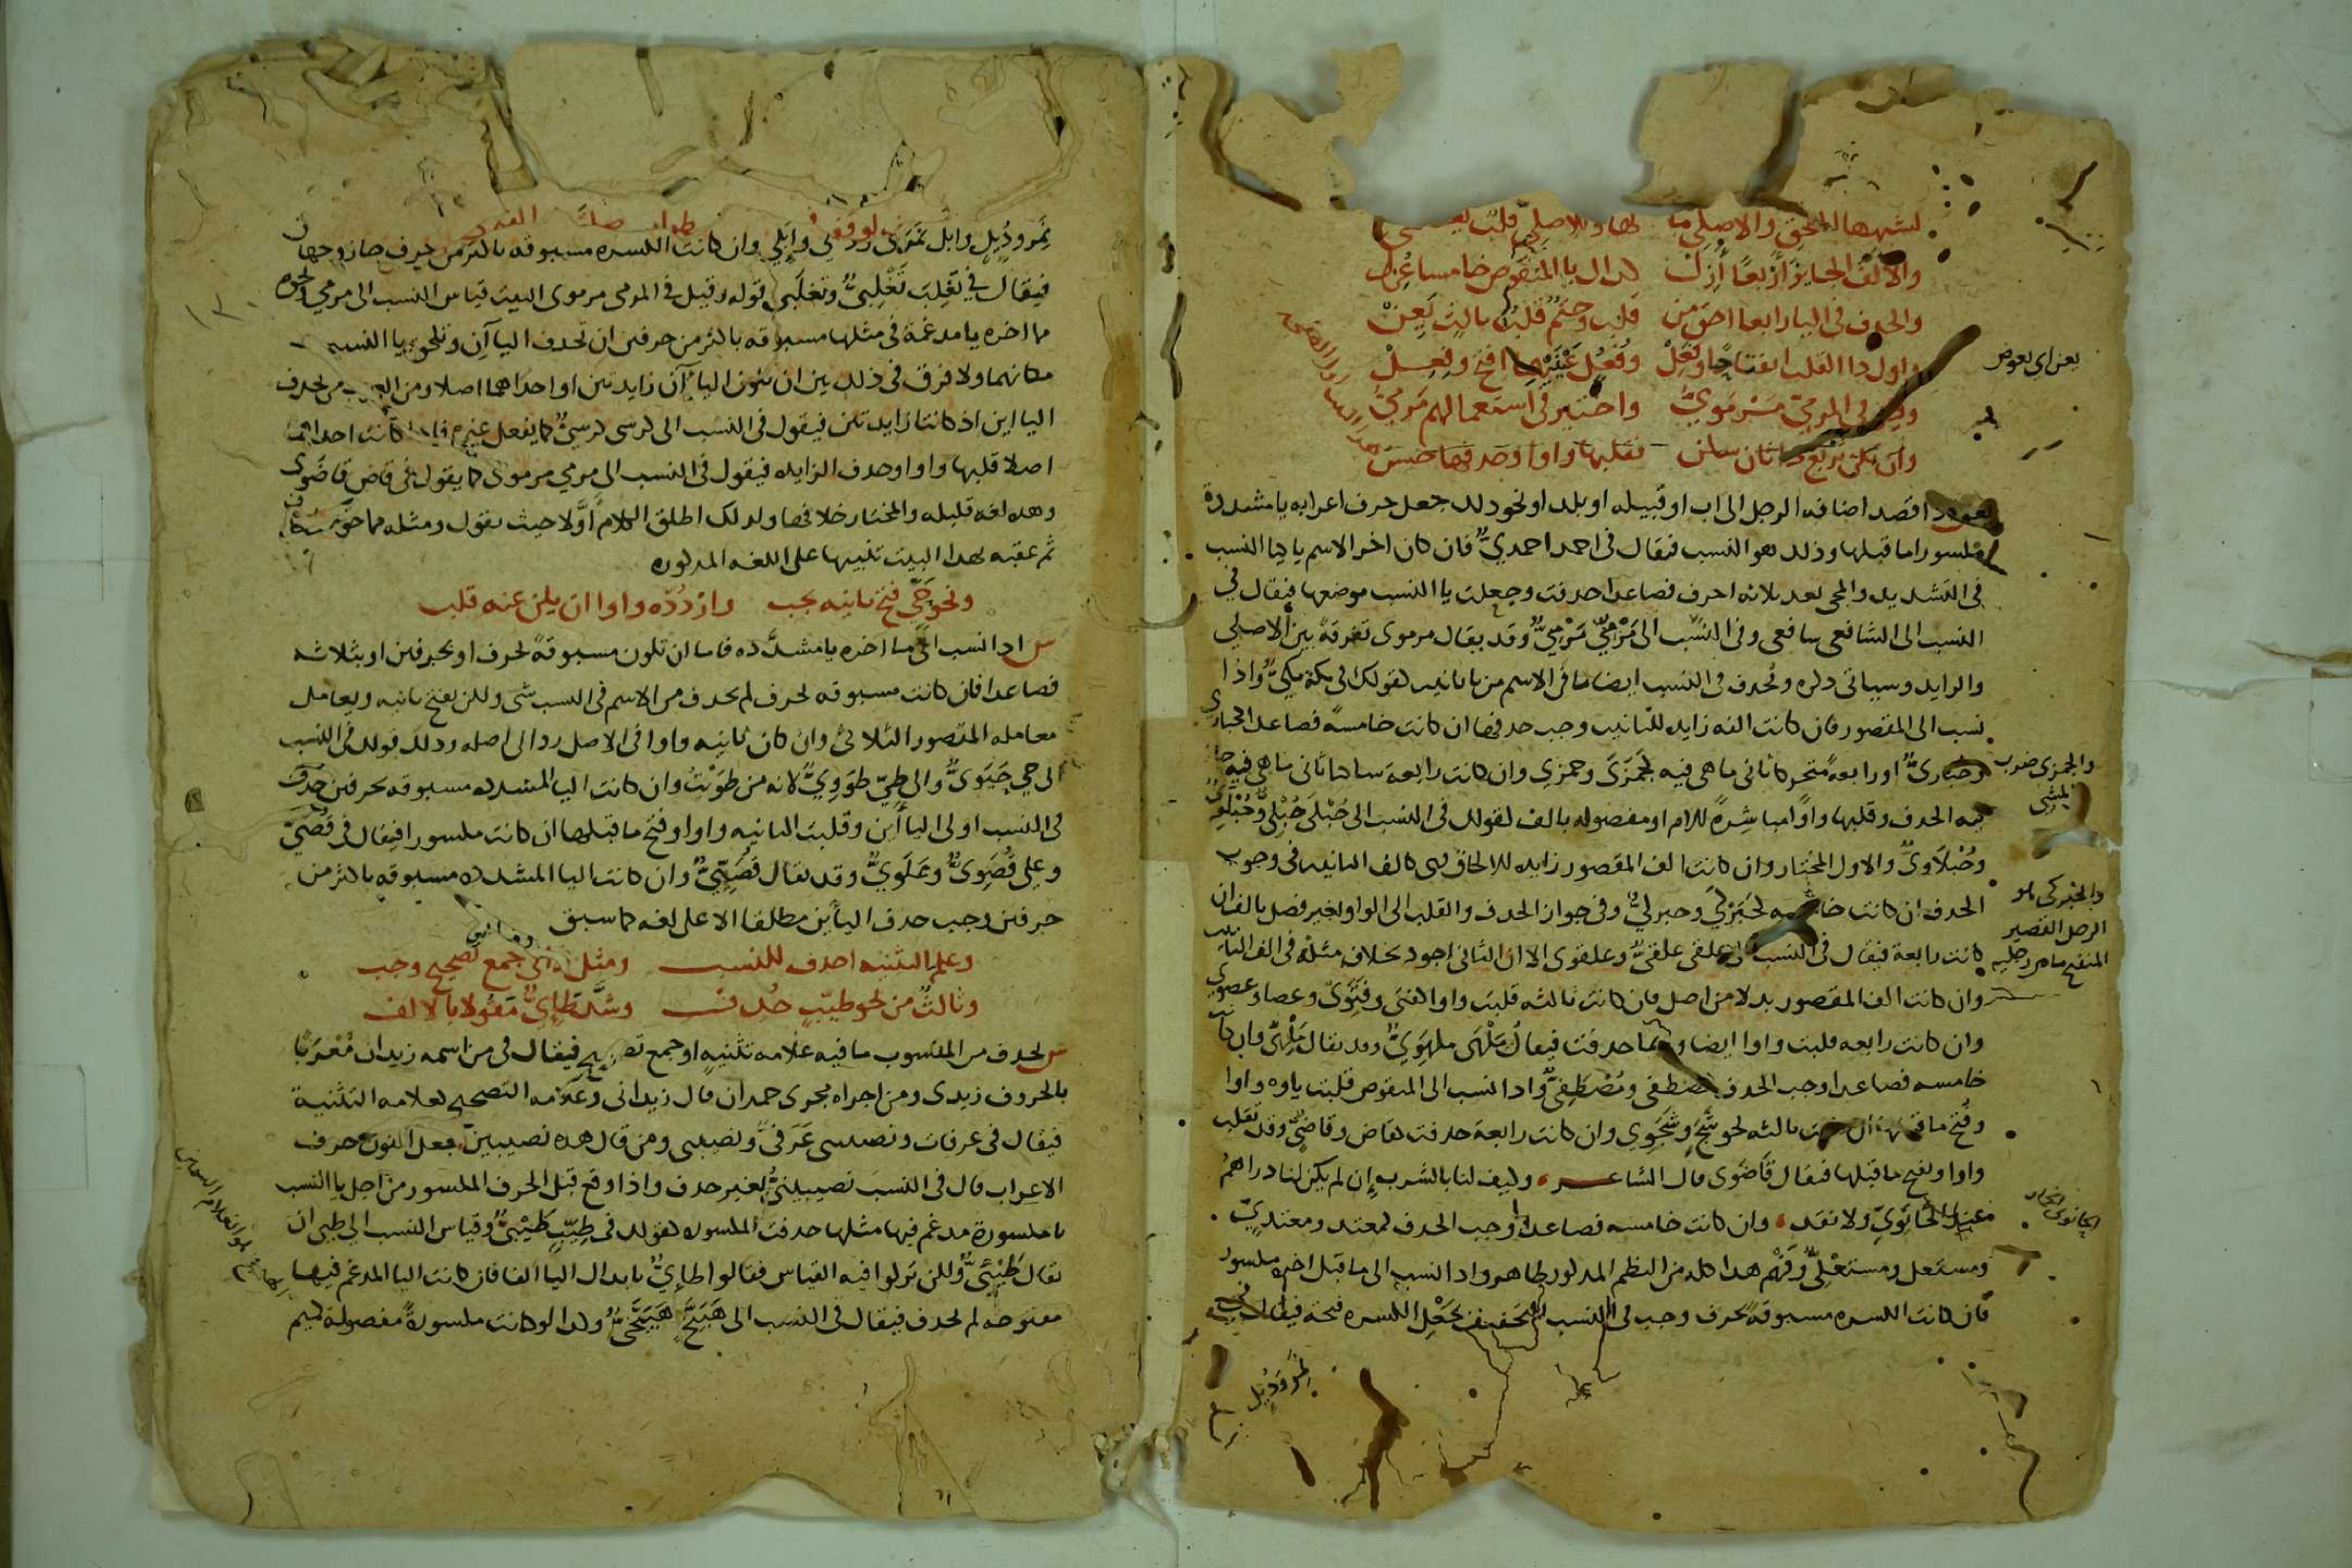 لشبهها الملحق والاصلي ما لها وللاصلي قلب يعتمى
والالف الجايز اربعا ازل كذاك يا المنقوص خامسا عزل
والحذف في اليا رابعا احق من قلب وحتم قلب ثالث يعن
واول ذا القلب انفتاحا وفعل وفعل عينهما افتح وفعل
وقيل في المرمي مرموي واختير في استعمالهم مرمي
وان تكن تربع ذا ثان سكن فقلبها واوا وحذفها حسن
اذا قصد اضافه الرجل الى اب او قبيله او بلد او نحو ذلك جعل حرف اعرابه يا مشددة
مكسورا ما قبلها وذلك هو النسب فيقال في احمد احمدي فان كان اخر الاسم يا كيا النسب
في التشديد والمجي بعد ثلاثه احرف فصاعدا حذفت وجعلت يا النسب موضعها فيقال في
النسب الى الشافعي شافعي وفي النسب الى مرمي مرمي وقد يقال مرموي تفرقة بين الاصلي
والزايد وسياتي ذكره وتحذف في النسب ايضا ما في الاسم من تا تانيث كقولك في مكة مكي واذا
نسب الى المقصور فان كانت الفه زايده للتانيث وجب حذفها ان كانت خامسة فصاعدا كحبارى
وحباري او رابعة متحركا ثاني ما هي فيه كجمزى وجمزي وان كانت رابعة ساكنا ثاني ما هي فيه جاز
فيه الحذف وقلبها واوا مباشرة للام او مفصوله بالف كقولك في النسب الى حبلى حبلي وحبلوي
وحبلاوي والاول المختار وان كانت الف المقصور زايده للالحاق فهي كالف التانيث في وجوب
الحذف ان كانت خامسه كحبركى وحبركي وفي جواز الحذف والقلب الى الواو بغير فصل بالف ان
كانت رابعة فيقال في النسب الى علقى علقي وعلقوي الا ان الثاني اجود بخلاف مثله في الف التانيث
وان كانت الف المقصور بدلا من اصل فان كانت ثالثه قلبت واوا كفتى وفتوي وعصا وعصوي
وان كانت رابعه قلبت واوا ايضا وربما حذفت فيقال في ملهى ملهوي وقد يقال ملهي وان كانت
خامسه فصاعدا وجب الحذف كمصطفى ومصطفي واذا نسب الى المنقوص قلبت ياوه واوا
وفتح ما قبلها ان كانت ثالثه نحو شج وشجوي وان كانت رابعة حذفت كقاض وقاضي وقد تقلب
واوا ويفتح ما قبلها فيقال قاضوي قال الشاعر وكيف لنا بالشرب ان لم يكن لنا دراهم
عند الحانوي ولا نقد وان كانت خامسه فصاعدا وجب الحذف كمعتد ومعتدي
ومستعل ومستعلي وفهم هذا كله من النظم المذكور ظاهر واذا نسب الى ما قبل اخره مكسور
فان كانت الكسره مسبوقة بحرف وجب في النسب التخفيف بجعل الكسره فتحة فيقال في
نمر ودئل
يعن اي يعوض
والجمزى ضرب
من المشي
والحبركى هو
الرجل القصير
نمر ودئل وابل نمري ودؤلي وابلي وان كانت الكسره مسبوقه باكثر من حرف جاز وجهان
فيقال في تغلب تغلبي وتغلبي قوله وقيل في المرمي مرموي البيت قياس النسب الى مرمي ونحوه
مما اخره يا مدغمة في مثلها مسبوقه باكثر من حرفين ان تحذف الياآن وتلحق يا النسب
مكانهما ولا فرق في ذلك بين ان تكون الياآن زايدتين او احداهما اصلا ومن العرب من يحذف
الياين اذ كانتا زايدتين فيقول في النسب الى كرسي كرسي كما يفعل غيرهم فاذا كانت احداهما
اصلا قلبها واوا وحذف الزايده فيقول في النسب الى مرمي مرموي كما يقول في قاض قاضوي
وهذه لغه قليله والمختار خلافها ولذلك اطلق الكلام اولا حيث يقول ومثله مما حواه احذف
ثم عقبه بهذا البيت تنبيها على اللغه المذكوره
ونحو حي فتح ثانيه يجب وازدده واوا ان يكن عنه قلب
ش اذا نسب الى ما اخره يا مشدده فاما ان تكون مسبوقة بحرف او بحرفين او بثلاثه
فصاعدا فان كانت مسبوقه بحرف لم يحذف من الاسم في النسب شى ولكن يفتح ثانيه ويعامل
معامله المقصور الثلاثي وان كان ثانيه واوا في الاصل رد الى اصله وذلك قولك في النسب
الى حي حيوي والى طي طووي لانه من طويت وان كانت اليا المشدده مسبوقه بحرفين حذف
في النسب اولى الياأين وقلبت الثانيه واوا وفتح ما قبلها ان كانت مكسورا فيقال في قصي
وعلي قصوي وعلوي وقد يقال قصيي وان كانت اليا المشدده مسبوقه باكثر من
حرفين وجب حذف اليأين مطلقا الا على لغه كما سبق
وعلم التثنيه احذف للنسب ومثل ذا في جمع تصحيح وجب
وثالث من نحو طيب حذف وشذ طائي مقولا بالالف
ش يحذف من المنسوب ما فيه علامه تثنيه او جمع تصحيح فيقال في من اسمه زيدان معربا
بالحروف زيدي ومن اجراه مجرى حمدان قال زيداني وعلامه التصحيح كعلامه التثنية
فيقال في عرفات ونصيبين عرفي ونصيبي ومن قال هذه نصيبين فجعل النون حرف
الاعراب قال في النسب نصيبيني بغير حذف واذا وقع قبل الحرف المكسور من اجل يا النسب
يا مكسورة مدغم فيها مثلها حذفت المكسوره كقولك في طيب طيبي وقياس النسب الى طيئ ان
يقال طيئي ولكن تركوا فيه القياس فقالوا طائي بابدال اليا الفا فان كانت اليا المدغم فيها
مفتوحه لم تحذف فيقال في النسب الى هبيخ هبيخي وكذا لو كانت مكسورة مفصولة كميم